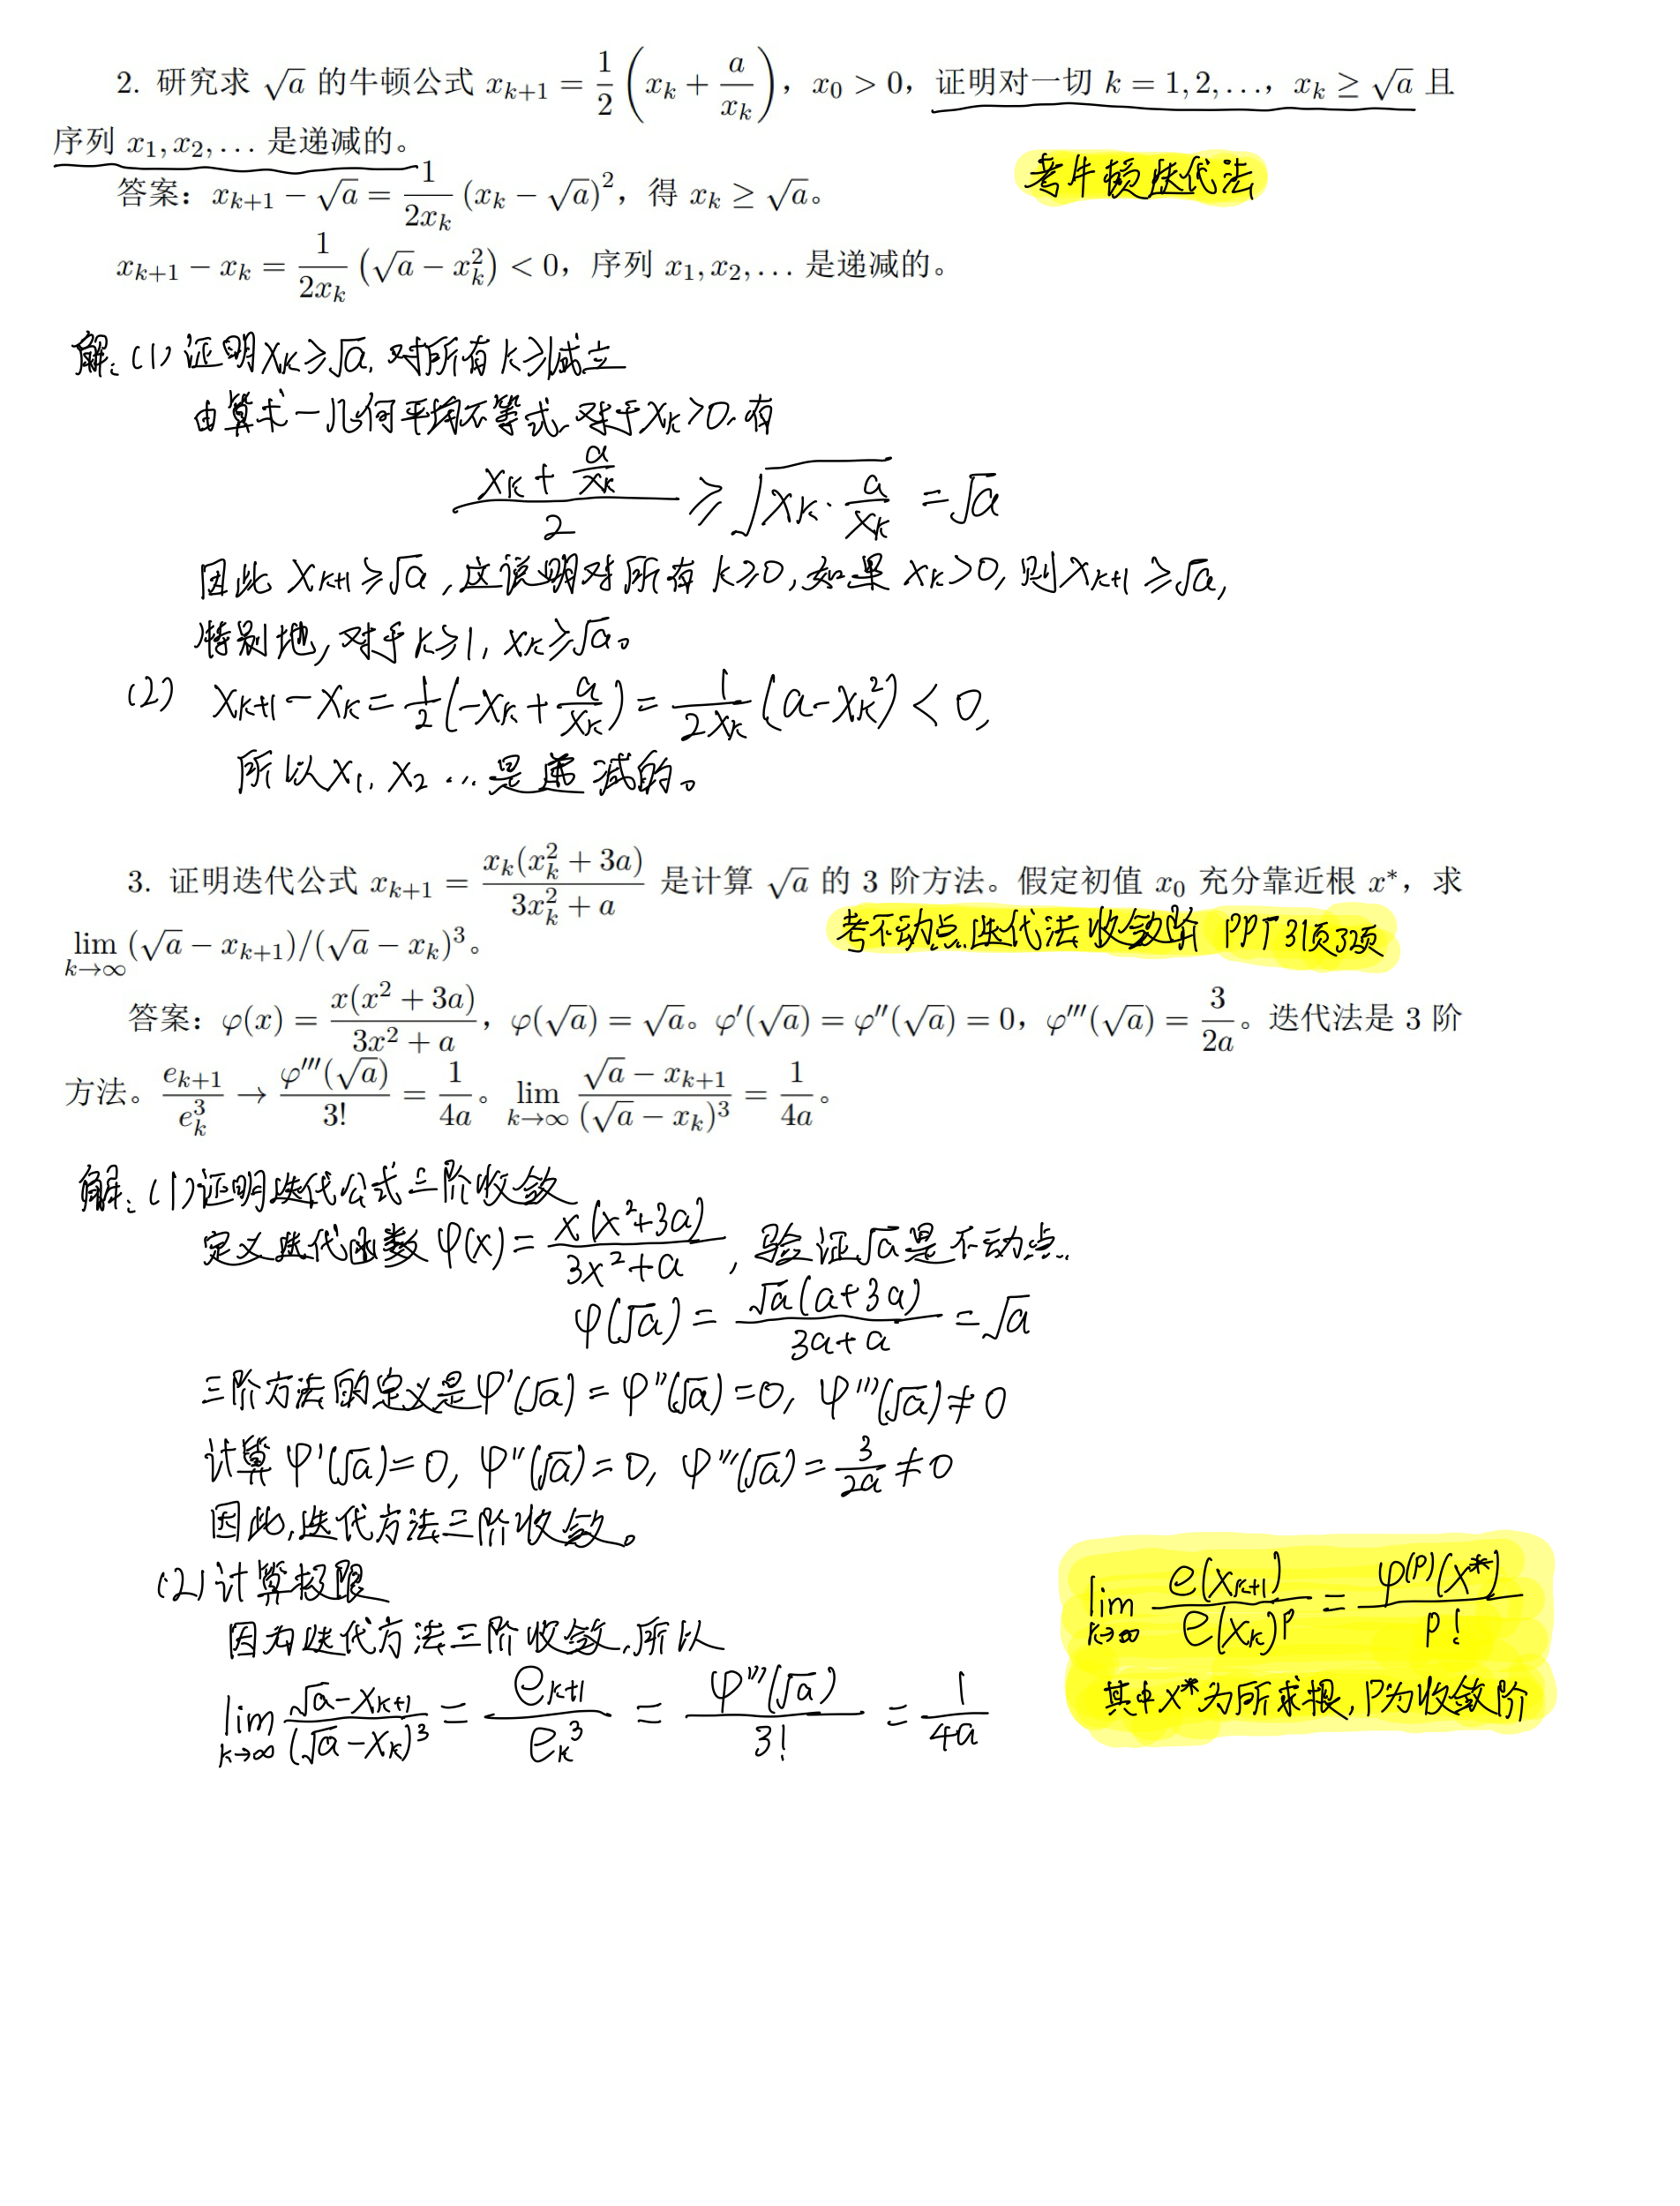 2. 研究求 √a 的牛顿公式 x_{k+1} = \frac{1}{2}(x_k + \frac{a}{x_k})，x_0 > 0，证明对一切 k = 1, 2, …，x_k ≥ √a 且
序列 x_1, x_2, … 是递减的。
考牛顿迭代法
答案：x_{k+1} − √a = \frac{1}{2x_k}(x_k − √a)^2，得 x_k ≥ √a。
x_{k+1} − x_k = \frac{1}{2x_k}(√a − x_k^2) < 0，序列 x_1, x_2, … 是递减的。
解：(1) 证明x_k≥√a，对所有k≥1成立
由算术-几何平均不等式，对于x_k>0，有
\frac{x_k + \frac{a}{x_k}}{2} ≥ \sqrt{x_k · \frac{a}{x_k}} = √a
因此 x_{k+1}≥√a，这说明对所有k≥0，如果x_k>0，则x_{k+1}≥√a，
特别地，对于k≥1，x_k≥√a。
(2) x_{k+1}−x_k = \frac{1}{2}(−x_k + \frac{a}{x_k}) = \frac{1}{2x_k}(a−x_k^2) < 0，
所以x_1，x_2 … 是递减的。
3. 证明迭代公式 x_{k+1} = \frac{x_k(x_k^2 + 3a)}{3x_k^2 + a} 是计算 √a 的 3 阶方法。假定初值 x_0 充分靠近根 x^*，求
\lim_{k→∞} (√a − x_{k+1})/(√a − x_k)^3。
考不动点迭代法收敛阶 PPT 31页32页
答案：φ(x) = \frac{x(x^2 + 3a)}{3x^2 + a}，φ(√a) = √a。φ′(√a) = φ″(√a) = 0，φ‴(√a) = \frac{3}{2a}。迭代法是 3 阶
方法。\frac{e_{k+1}}{e_k^3} → \frac{φ‴(√a)}{3!} = \frac{1}{4a}。\lim_{k→∞} \frac{√a − x_{k+1}}{(√a − x_k)^3} = \frac{1}{4a}。
解：(1) 证明迭代公式三阶收敛
定义迭代函数 φ(x) = \frac{x(x^2+3a)}{3x^2+a}，验证√a是不动点.
φ(√a) = \frac{√a(a+3a)}{3a+a} = √a
三阶方法的定义是φ′(√a) = φ″(√a) = 0，φ‴(√a) ≠ 0
计算 φ′(√a) = 0，φ″(√a) = 0，φ‴(√a) = \frac{3}{2a} ≠ 0
因此，迭代方法三阶收敛。
(2) 计算极限
因为迭代方法三阶收敛，所以
\lim_{k→∞} \frac{√a−x_{k+1}}{(√a−x_k)^3} = \frac{e_{k+1}}{e_k^3} = \frac{φ‴(√a)}{3!} = \frac{1}{4a}
\lim_{k→∞} \frac{e(x_{k+1})}{e(x_k)^p} = \frac{φ^{(p)}(x^*)}{p!}
其中x^*为所求根，p为收敛阶